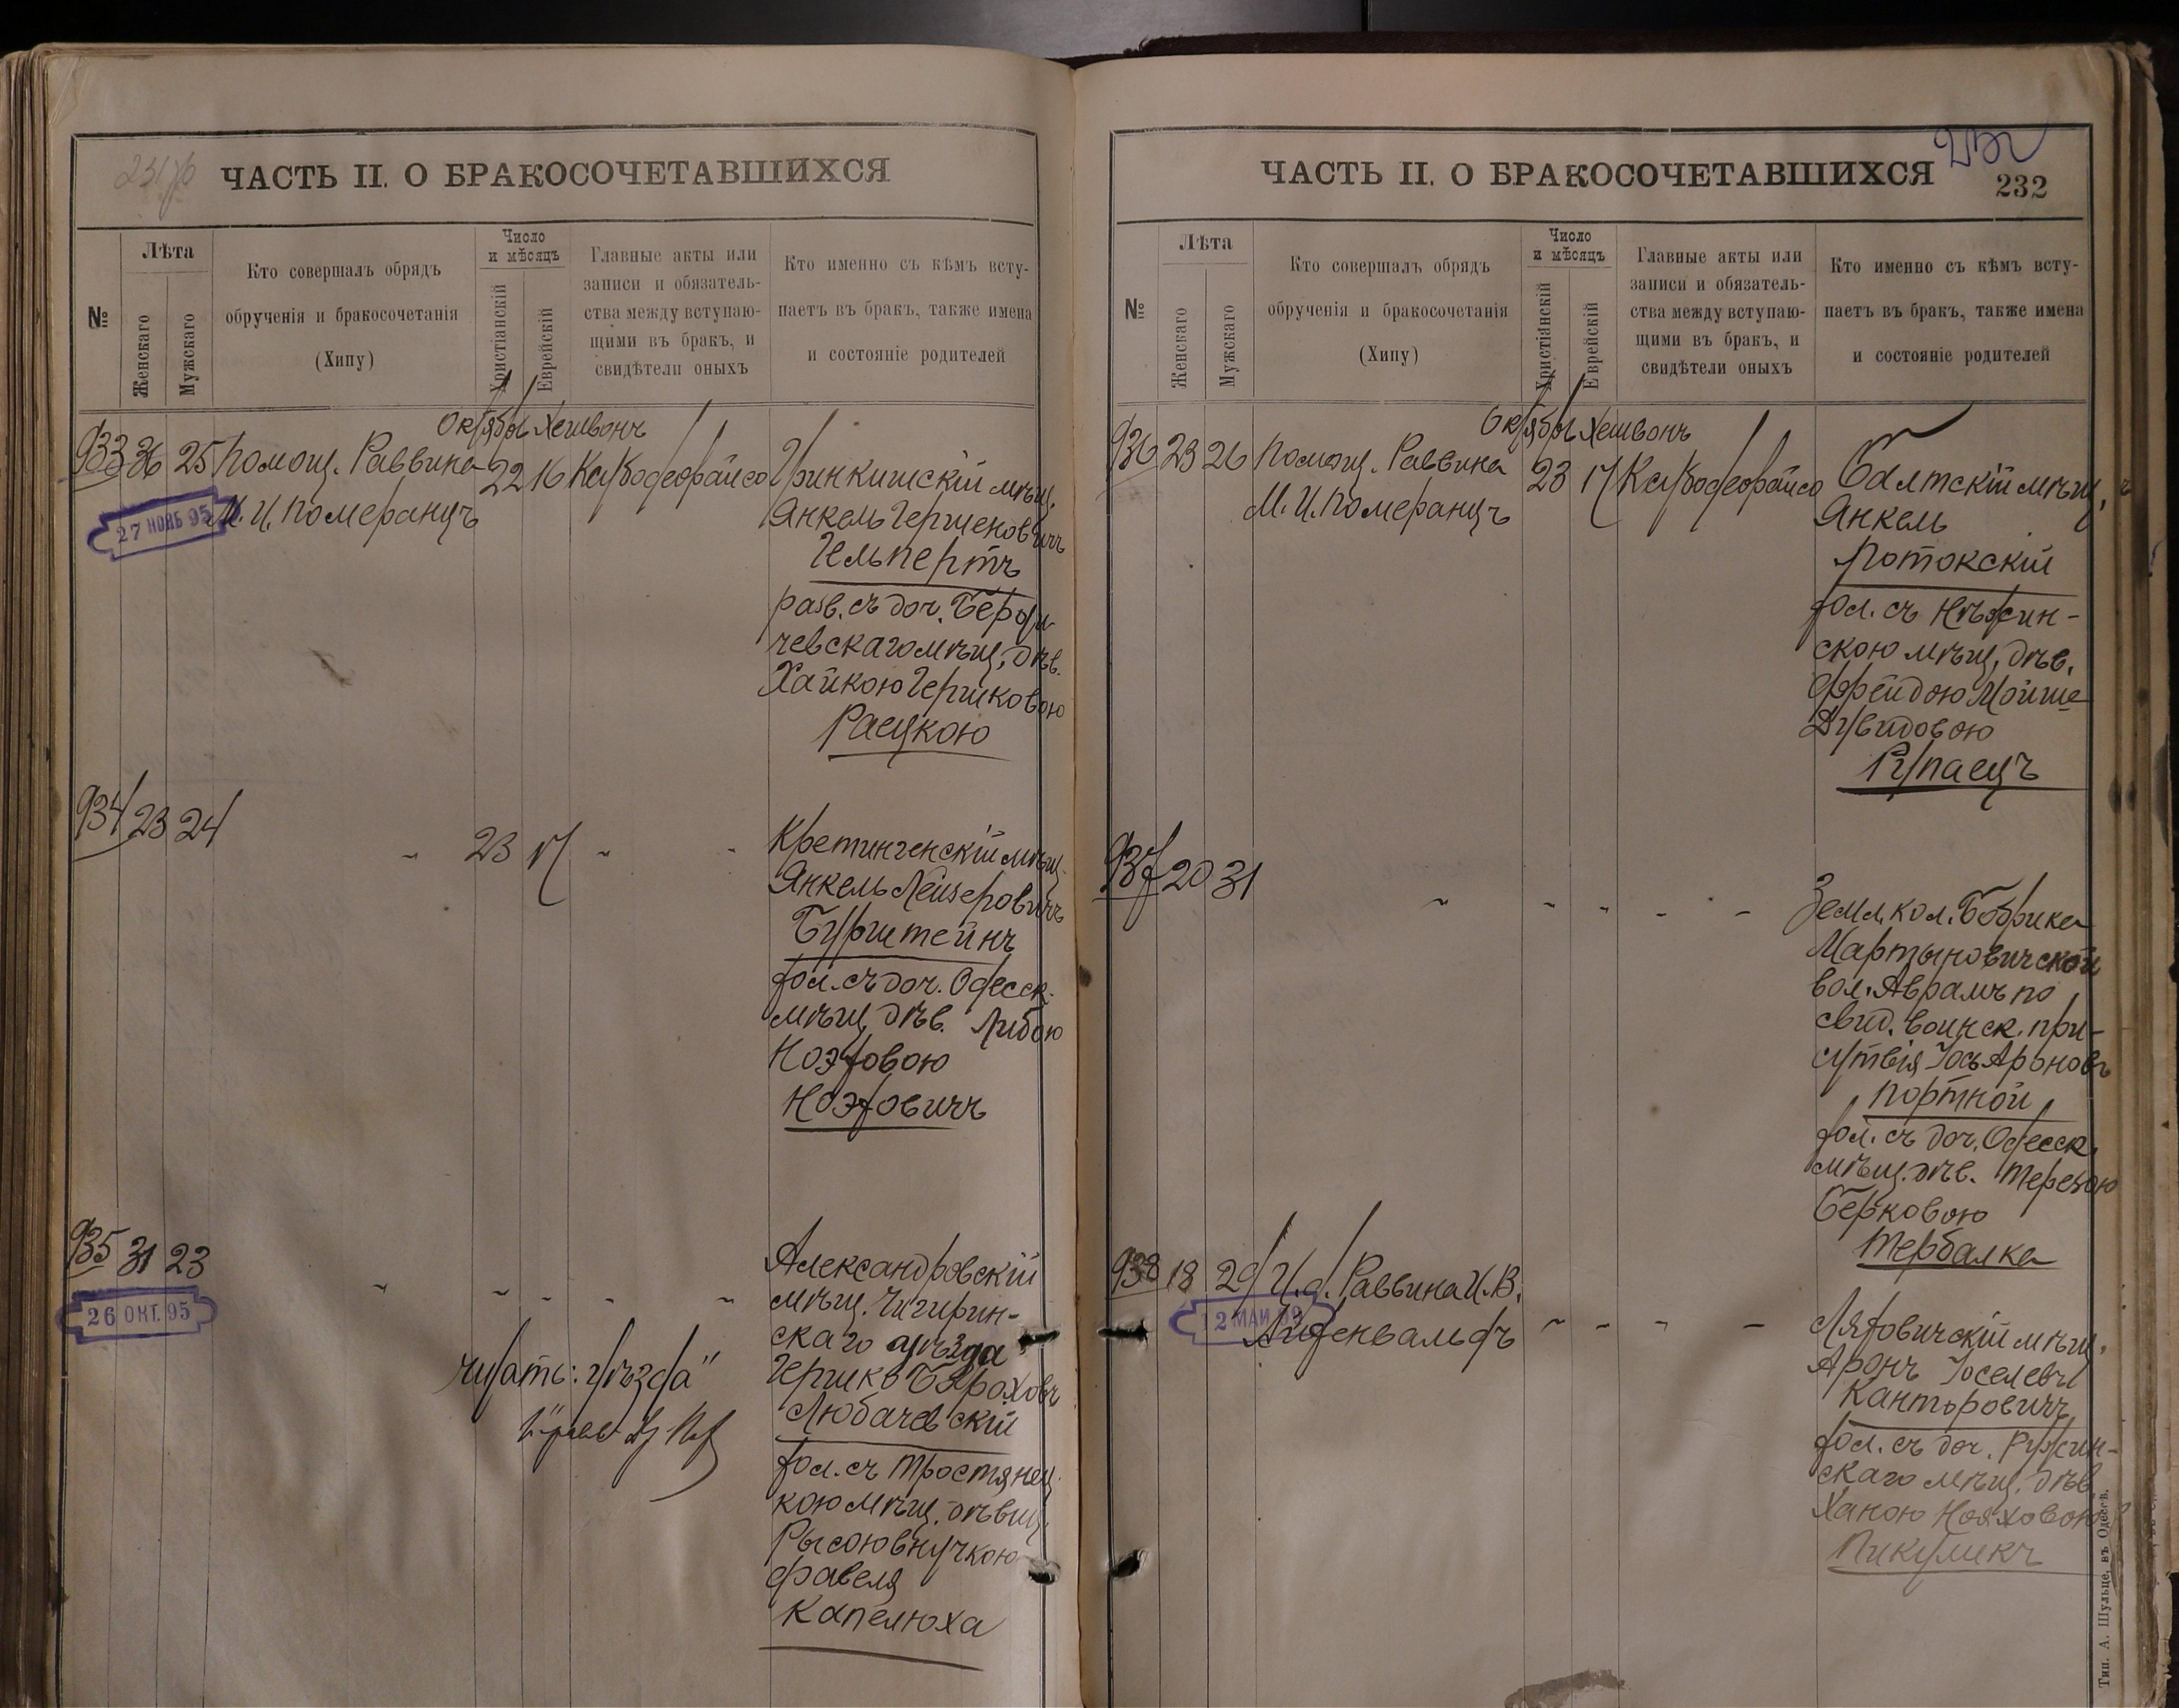 ЧАСТЬ II. О БРАКОСОЧЕТАВШИХСЯ
№
Лѣта
Женскаго
Мужскаго
Кто совершалъ обрядъ
обрученія и бракосочетанія
(Хипу)
Число
и мѣсяцъ
Христіанскій
Еврейскій
Главные акты или
записи и обязатель-
ства между вступаю-
щими въ бракъ, и
свидѣтели оныхъ
Кто именно съ кѣмъ всту-
паетъ въ бракъ, также имена
и состояніе родителей
Октябрь Хешвонъ
933 36 25 Помощ. Раввина 22 16
М. И. Померанцъ
27 НОЯБ 95
Гринкишскій мѣщ.
Янкель Гершеновичъ
Гельпертъ
разв. съ доч. Берди-
чевскаго мѣщ. дѣв.
Хайкою Гершковою
Расцкою
934 23 24 " 23 17 " "
Кретингенскій мѣщ.
Янкель Лейзеровичъ
Бурштейнъ
хол. съ доч. Одесск.
мѣщ. дѣв. Либою
Ноэховою
Ноэховичъ
935 31 23 " " " " "
26 ОКТ. 95
Александровскій
мѣщ. Чигирин-
скаго уѣзда
Гершко Бороховъ
Любачевскій
хол. съ Тростянец.
кою мѣщ. дѣвиц.
Рысою внучкою
Фавеля
Капелюха
читать: уѣзда"
ЧАСТЬ II. О БРАКОСОЧЕТАВШИХСЯ
232
№
Лѣта
Женскаго
Мужскаго
Кто совершалъ обрядъ
обрученія и бракосочетанія
(Хипу)
Число
и мѣсяцъ
Христіанскій
Еврейскій
Главные акты или
записи и обязатель-
ства между вступаю-
щими въ бракъ, и
свидѣтели оныхъ
Кто именно съ кѣмъ всту-
паетъ въ бракъ, также имена
и состояніе родителей
Октябрь Хешвонъ
936 23 26 Помощ. Раввина 23 17
М. И. Померанцъ
Балтскій мѣщ.
Янкель
Потокскій
хол. съ Нѣжин-
скою мѣщ. дѣв.
Фрейдою Мойше
Дувидовою
Рупаецъ
937 20 31 " " " " "
Земл. кол. Бобрика
Мартыновичской
вол. Аврамъ по
свид. воинск. при-
сутвія Іось Ароновъ
Портной
хол. съ доч. Одесск.
мѣщ. дѣв. Терезою
Берковою
Щербалка
938 18 29 И. д. Раввина И. В.
Айхенвальдъ " " " "
12 МАЙ
Ляховичскій мѣщ.
Аронъ Іоселевъ
Канторовичъ
хол. съ доч. Ружин-
скаго мѣщ. дѣв.
Ханою Нояховою
Пикуликъ
Тип. А. Шульце, въ Одессѣ.